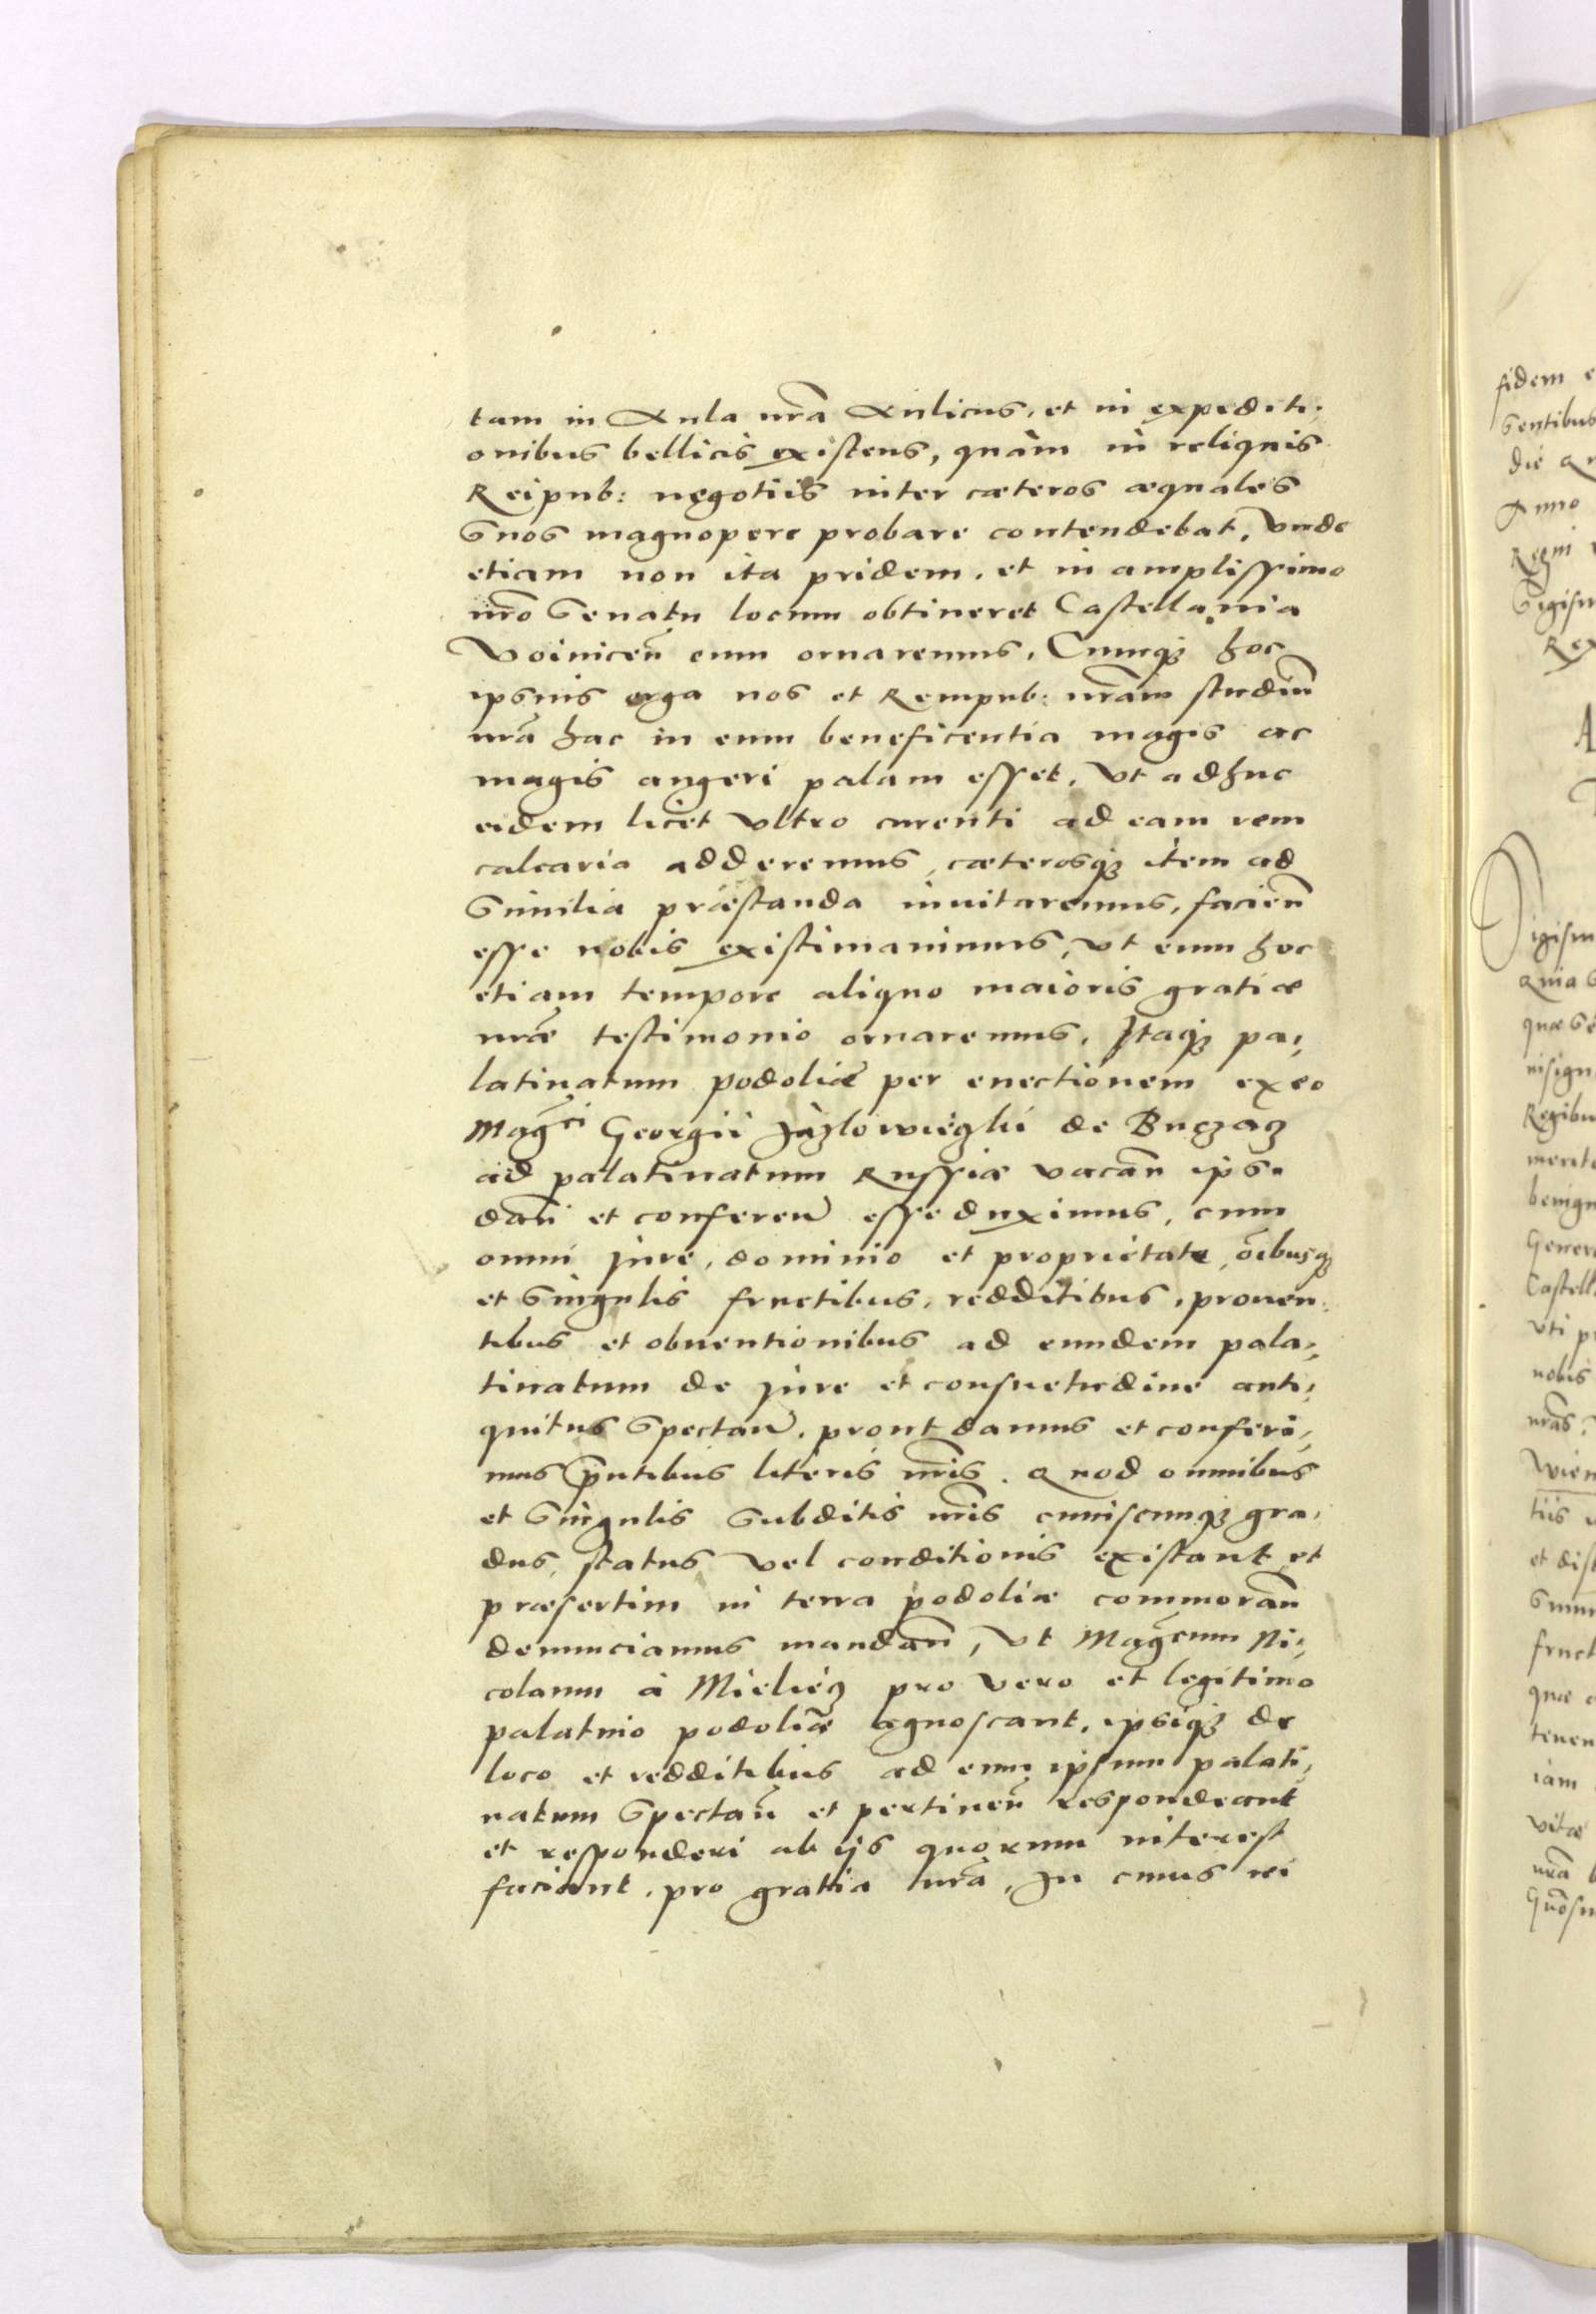 tam in Aula nrã Aulicus, et in expediti,
onibus bellicis existens, quàm in reliquis
Reipub: negotiis inter cæteros æquales
suos magnopere probare contendebat, vnde
etiam non ita pridem, et in amplissimo
nrõ Senatu locum obtineret Castellania
Voinicen̄ eum ornaremus. Cumqꝫ hoc
ipsius erga nos et Rempub: nrãm studiũ
nrã hac in eum beneficentia magis ac
magis augeri palam esset, vt adhuc
eidem licet vltro currenti ad eam rem
calcaria adderemus, cæterosqꝫ item ad
similia præstanda inuitaremus, facien̄
esse nobis existimauimus, vt eum hoc
etiam tempore aliquo maioris gratiæ
nræ̃ testimonio ornaremus. Itaqꝫ pa,,
latinatum podoliæ per euectionem ex eo
Mag̃ci Georgii Jazlowieczkii de Buczacz
ad palatinatum Russiæ vacan̄ ipsi
dan̄ et conferen̄ esse duximus, cum
omni jure, dominio et proprietate, õibusqꝫ
et singulis fructibus, redditibus, prouen,
tibus et obuentionibus ad eundem pala,,
tinatum de jure et consuetudine anti,,
quitus spectan̄, prout damus et conferi,,
mus p̃ntibus literis nrĩs. Quod omnibus
et singulis subditis nrĩs cuiuscunqꝫ gra,
dus, status vel conditionis existant et
præsertim in terra podoliæ commoran̄
denunciamus mandan̄, vt Mag̃cum Ni,,
colaum à Mieliecz pro vero et legitimo
palatino podoliæ agnoscant, ipsiqꝫ de
loco et redditibus ad eum ipsum palati,,
natum spectan̄ et pertinen̄ respondeant
et responderi ab ijs quorum interest
faciant, pro gratia nrã. In cuius rei
fidem e
sentibus
die
Anno
Regni
Sigism
Rex
Sigism
Quia
quæ
insign
Regibu
merit
benign
Genero
Castell
vti p
nobis
nrãs
Wien
tiis
et dis
summ
fruct
quæ
tenen
iam
vitæ
nrã